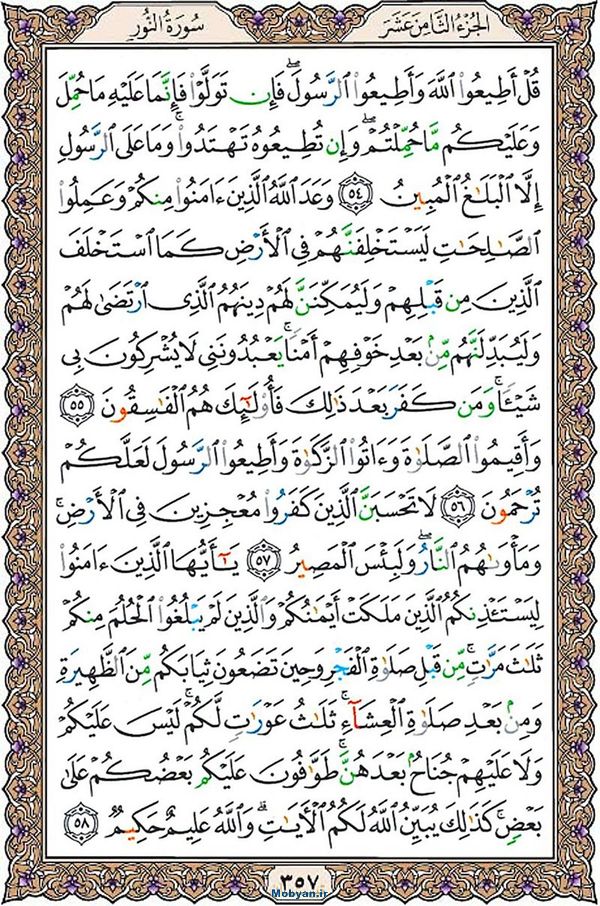 الجزء الثامن عشر
سورة النور
قُلْ أَطِيعُوا۟ ٱللَّهَ وَأَطِيعُوا۟ ٱلرَّسُولَ ۖ فَإِن تَوَلَّوْا۟ فَإِنَّمَا عَلَيْهِ مَا حُمِّلَ
وَعَلَيْكُم مَّا حُمِّلْتُمْ ۖ وَإِن تُطِيعُوهُ تَهْتَدُوا۟ ۚ وَمَا عَلَى ٱلرَّسُولِ
إِلَّا ٱلْبَلَـٰغُ ٱلْمُبِينُ ٥٤ وَعَدَ ٱللَّهُ ٱلَّذِينَ ءَامَنُوا۟ مِنكُمْ وَعَمِلُوا۟
ٱلصَّـٰلِحَـٰتِ لَيَسْتَخْلِفَنَّهُمْ فِى ٱلْأَرْضِ كَمَا ٱسْتَخْلَفَ
ٱلَّذِينَ مِن قَبْلِهِمْ وَلَيُمَكِّنَنَّ لَهُمْ دِينَهُمُ ٱلَّذِى ٱرْتَضَىٰ لَهُمْ
وَلَيُبَدِّلَنَّهُم مِّنۢ بَعْدِ خَوْفِهِمْ أَمْنًا ۚ يَعْبُدُونَنِى لَا يُشْرِكُونَ بِى
شَيْـًٔا ۚ وَمَن كَفَرَ بَعْدَ ذَٰلِكَ فَأُو۟لَـٰٓئِكَ هُمُ ٱلْفَـٰسِقُونَ ٥٥
وَأَقِيمُوا۟ ٱلصَّلَوٰةَ وَءَاتُوا۟ ٱلزَّكَوٰةَ وَأَطِيعُوا۟ ٱلرَّسُولَ لَعَلَّكُمْ
تُرْحَمُونَ ٥٦ لَا تَحْسَبَنَّ ٱلَّذِينَ كَفَرُوا۟ مُعْجِزِينَ فِى ٱلْأَرْضِ ۚ
وَمَأْوَىٰهُمُ ٱلنَّارُ ۖ وَلَبِئْسَ ٱلْمَصِيرُ ٥٧ يَـٰٓأَيُّهَا ٱلَّذِينَ ءَامَنُوا۟
لِيَسْتَـْٔذِنكُمُ ٱلَّذِينَ مَلَكَتْ أَيْمَـٰنُكُمْ وَٱلَّذِينَ لَمْ يَبْلُغُوا۟ ٱلْحُلُمَ مِنكُمْ
ثَلَـٰثَ مَرَّٰتٍ ۚ مِّن قَبْلِ صَلَوٰةِ ٱلْفَجْرِ وَحِينَ تَضَعُونَ ثِيَابَكُم مِّنَ ٱلظَّهِيرَةِ
وَمِنۢ بَعْدِ صَلَوٰةِ ٱلْعِشَآءِ ۚ ثَلَـٰثُ عَوْرَٰتٍ لَّكُمْ ۚ لَيْسَ عَلَيْكُمْ
وَلَا عَلَيْهِمْ جُنَاحٌۢ بَعْدَهُنَّ ۚ طَوَّٰفُونَ عَلَيْكُم بَعْضُكُمْ عَلَىٰ
بَعْضٍ ۚ كَذَٰلِكَ يُبَيِّنُ ٱللَّهُ لَكُمُ ٱلْـَٔايَـٰتِ ۗ وَٱللَّهُ عَلِيمٌ حَكِيمٌ ٥٨
٣٥٧
Mobyan.ir